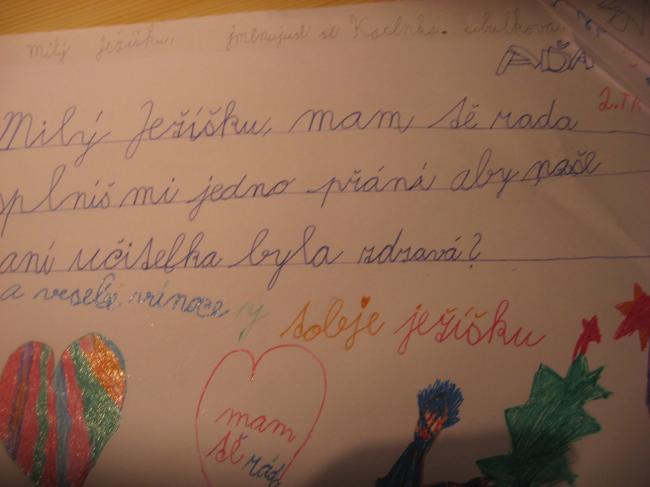 Milý Ježíšku, jmenujusl se
AĎA
2.TŘ
Milý Ježíšku, mam tě rada
splníš mi jedno přáná aby naše
aní učitelka byla zdravá?
a veselé vánoce y tobje ježíšku
mam
tě rád